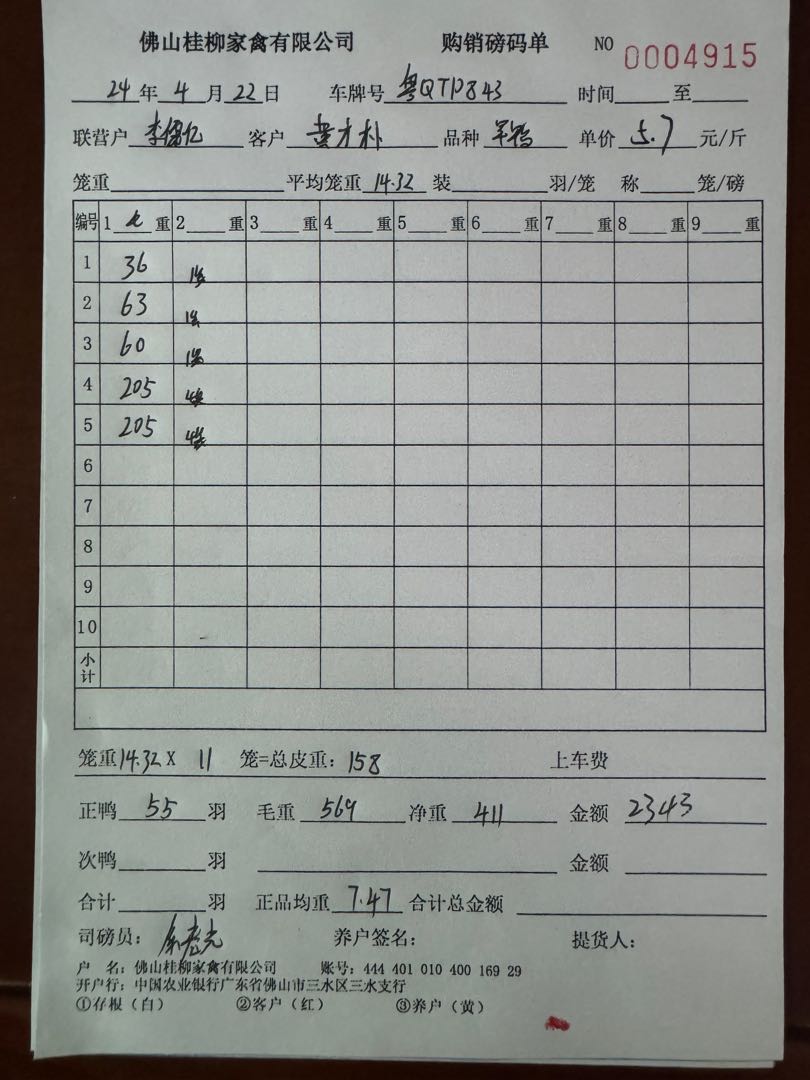 佛山桂柳家禽有限公司 购销磅码单 NO 0004915
24年4月22日 车牌号 粤QTP843 时间 至
联营户 李 亿 客户 黄才朴 品种 单价 5.7 元/斤
笼重 平均笼重 14.32 装 羽/笼 称 笼/磅
编号 1 重 2 重 3 重 4 重 5 重 6 重 7 重 8 重 9 重
1 36 1
2 63 1
3 60 1
4 205 4
5 205 4
6
7
8
9
10
小计
笼重14.32 X 11 笼=总皮重：158 上车费
正鸭 55 羽 毛重 569 净重 411 金额 2343
次鸭 羽 金额
合计 羽 正品均重 7.47 合计总金额
司磅员： 养户签名： 提货人：
户 名：佛山桂柳家禽有限公司 账号：444 401 010 400 169 29
开户行：中国农业银行广东省佛山市三水区三水支行
①存根（白） ②客户（红） ③养户（黄）